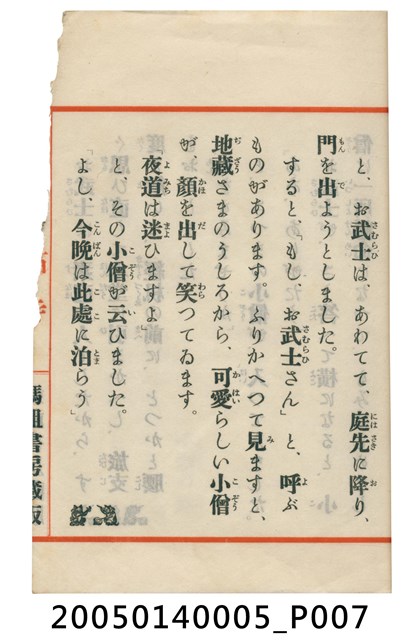 と、お武士はあわてて、庭先に降り、
門を出ようとしました。
すると、「もし、お武士さん」と、呼ぶ
ものがあります。ふりかへつて見ますと、
地藏さまのうしろから、可愛らしい小僧
が顔を出して笑つてゐます。
「夜道は迷ひますよ」
と、その小僧が云ひました。
「よし、今晩は此處に泊らう」
媽祖書房藏版
20050140005_P007